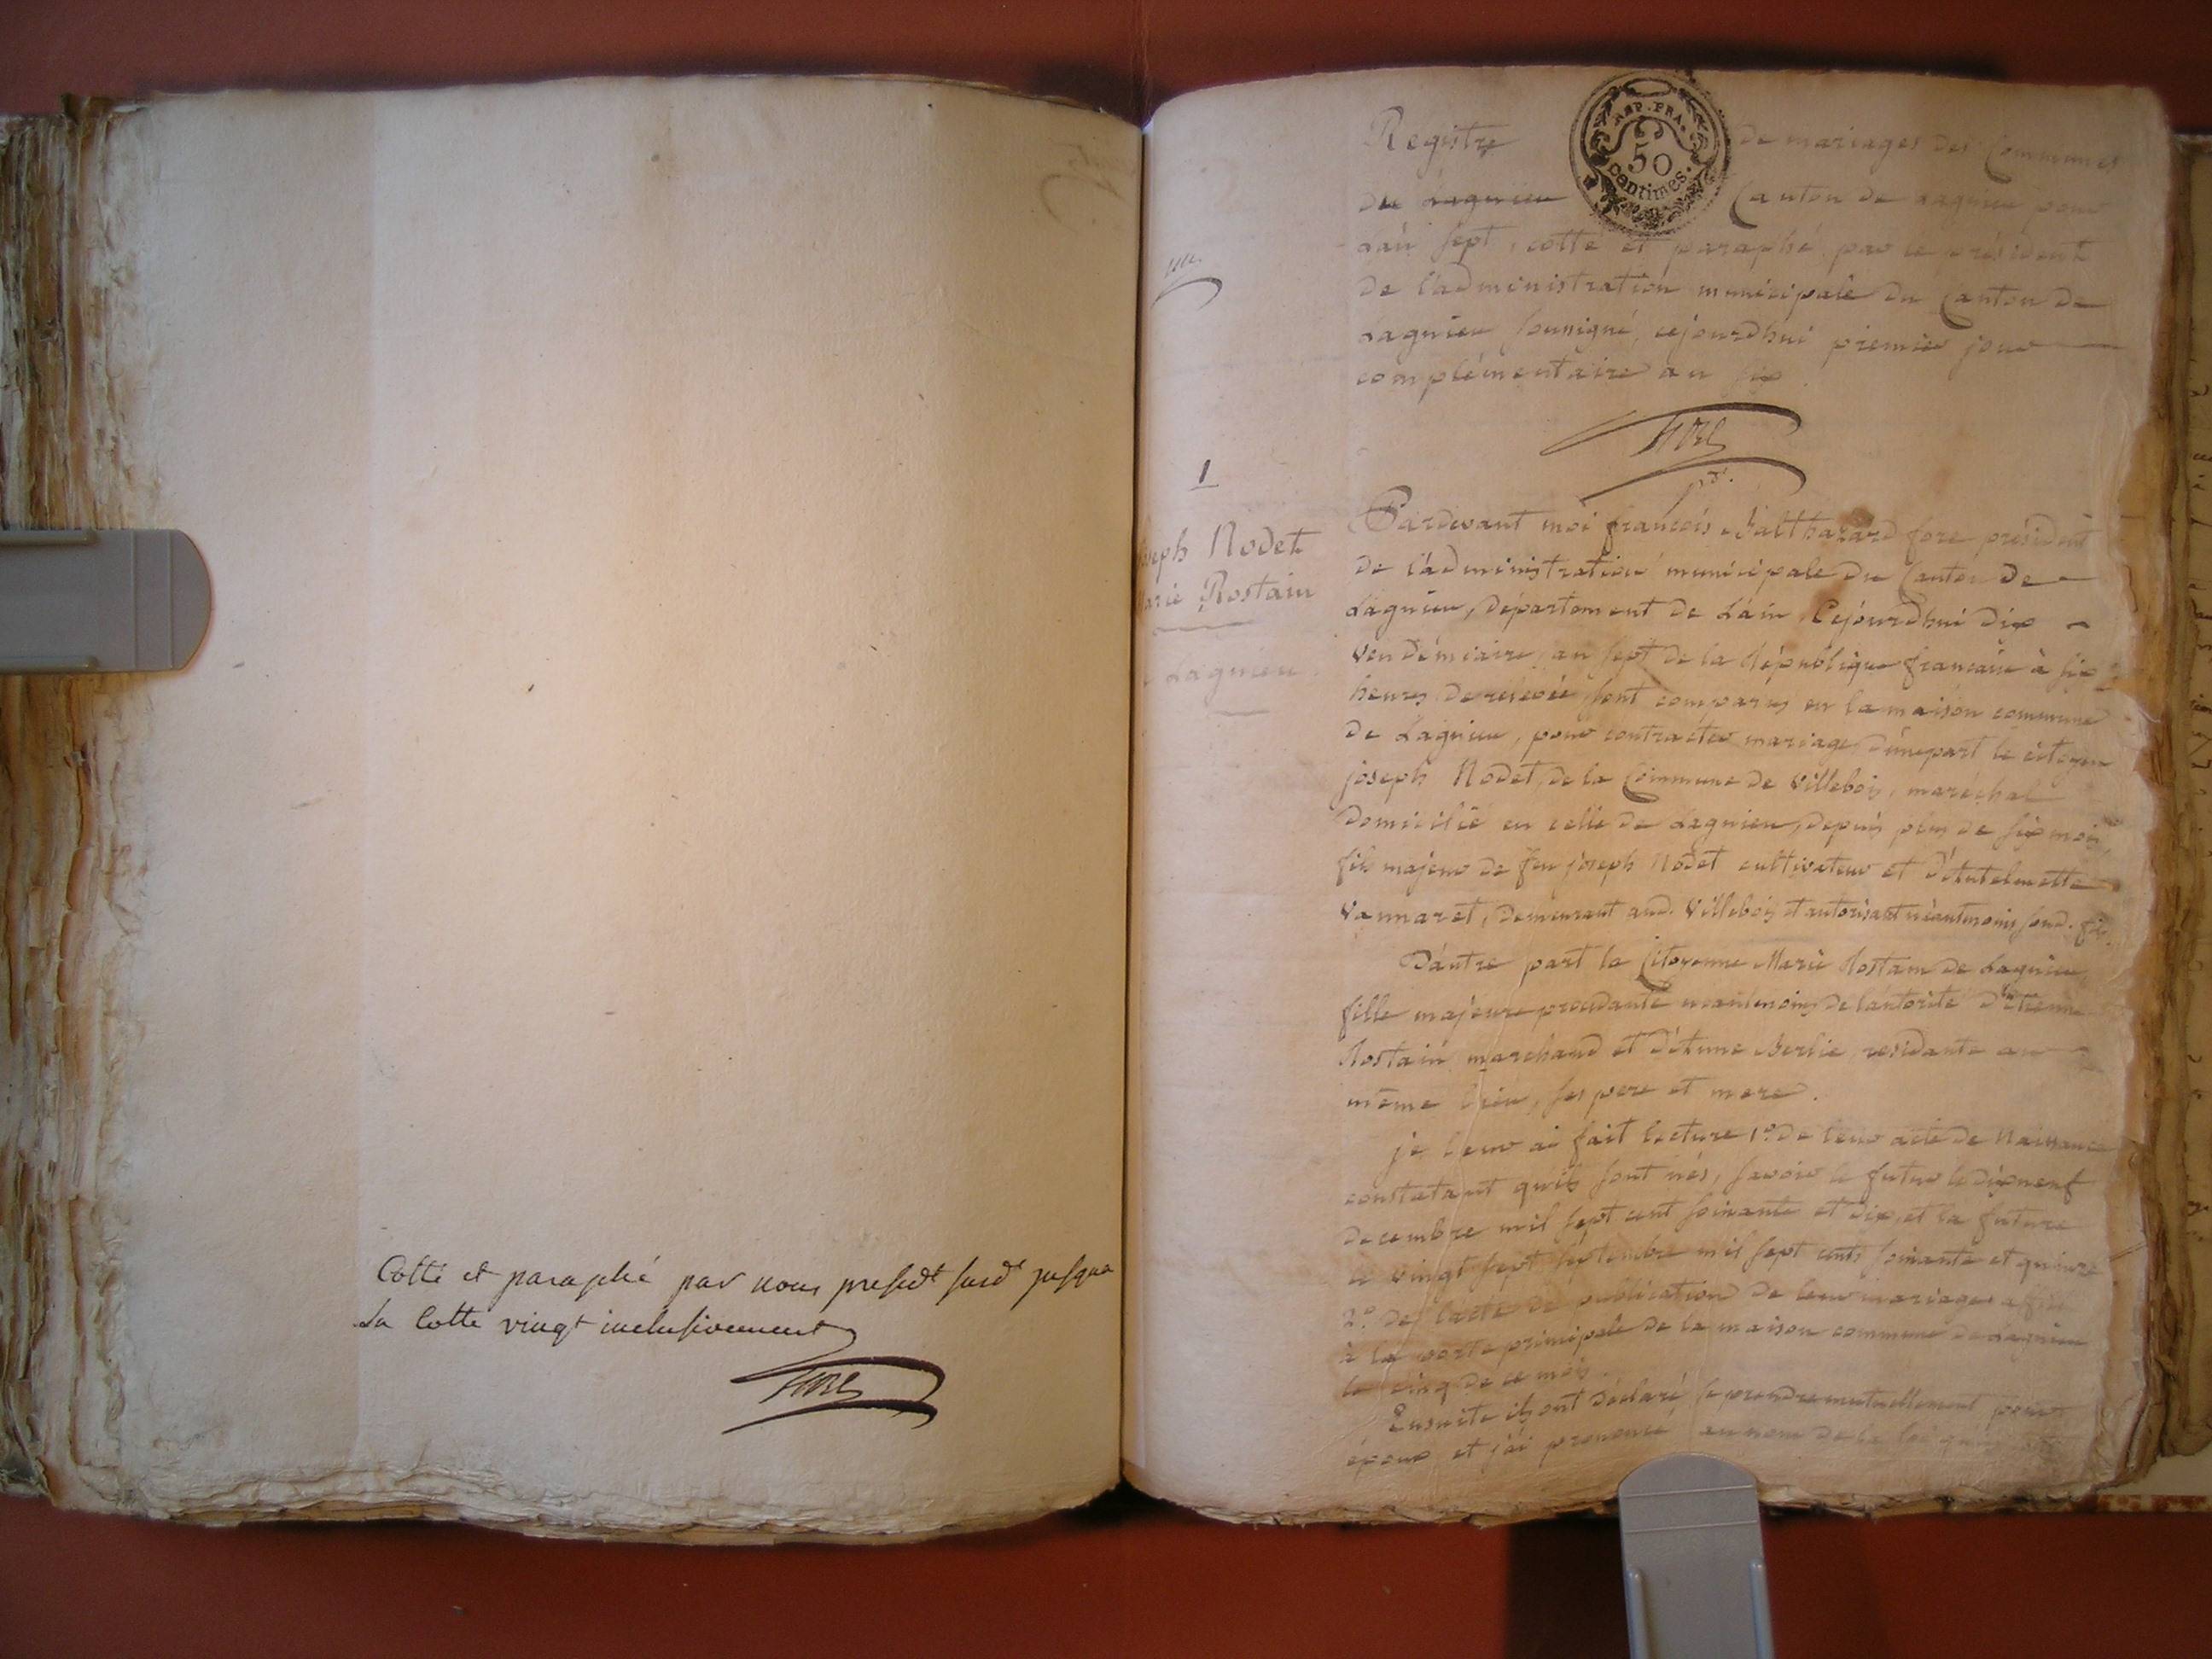 Cotté et paraphé par nous presidt susdt jusqua
La Cotte vingt inclusivement
fore
une.
Registre de mariages des Communes
du Lagnieu Canton de Lagnieu pour
Lan sept, cotté et paraphé par le président
de l'administration municipale du Canton de
Lagnieu soussigné, cejourdhui premier jour
complémentaire an six.
fore
pdt.
1
Joseph Nodet
Marie Rostain
Lagnieu.
Pardevant moi françois Balthazard fore président
de l'administration municipale du Canton de
Lagnieu, département de Lain, Cejourdhui dix
vendémiaire, an sept de la République française à six
heures de relevée, sont comparus en la maison commune
de Lagnieu, pour contracter mariage, d'unepart le citoyen
joseph Nodet, de la Commune de Villebois, maréchal
domicilié en celle de Lagnieu, depuis plus de six mois,
fils majeur de feu joseph Nodet cultivateur et
vannaret, demeurant aud. Villebois et autorisant néantmoins sond. fils.
D'autre part la Citoyenne Marie Rostain de Lagnieu,
fille majeure procedante néantmoins de lautorité d'étienne
Rostain marchand et Berlie, residants au
même lieu, ses pere et mere.
je leur ai fait lecture 1.º de leur acte de Naissance
constatant quils sont nés, savoir le futur le dixneuf
decembre mil sept cent soixante et dix, et la future
le vingt sept septembre mil sept cents soixante et quinze
2.º de l'acte de publication de leur mariage
à la porte principale de la maison commune de Lagnieu
le cinq de ce mois.
Ensuite ils ont déclaré se prendre mutuellement pour
époux et j'ai prononcé au nom de la loi
RÉP. FRA.
50
centimes.